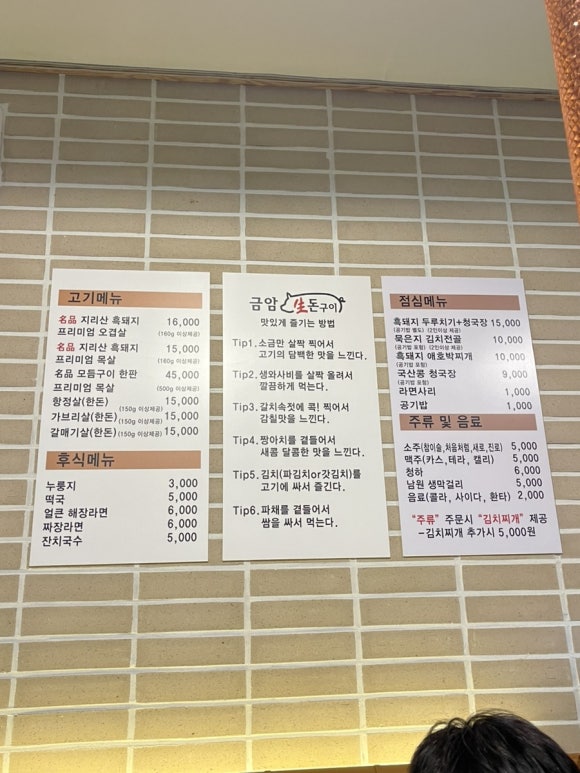 고기메뉴
名品 지리산 흑돼지 16,000
프리미엄 오겹살 (160g 이상제공)
名品 지리산 흑돼지 15,000
프리미엄 목살 (160g 이상제공)
名品 모듬구이 한판 45,000
프리미엄 목살 (500g 이상제공)
항정살(한돈) (150g 이상제공) 15,000
가브리살(한돈) (150g 이상제공) 15,000
갈매기살(한돈) (150g 이상제공) 15,000
후식메뉴
누룽지 3,000
떡국 5,000
얼큰 해장라면 6,000
짜장라면 6,000
잔치국수 5,000
금암 生돈구이
맛있게 즐기는 방법
Tip1. 소금만 살짝 찍어서
고기의 담백한 맛을 느낀다.
Tip2. 생와사비를 살짝 올려서
깔끔하게 먹는다.
Tip3. 갈치속젓에 콕! 찍어서
감칠맛을 느낀다.
Tip4. 짱아치를 곁들어서
새콤 달콤한 맛을 느낀다.
Tip5. 김치(파김치or갓김치)를
고기에 싸서 즐긴다.
Tip6. 파채를 곁들어서
쌈을 싸서 먹는다.
점심메뉴
흑돼지 두루치기+청국장 15,000
(공기밥 별도) (2인이상 제공)
묵은지 김치전골 10,000
(공기밥 포함) (2인이상 제공)
흑돼지 애호박찌개 10,000
(공기밥 포함)
국산콩 청국장 9,000
(공기밥 포함)
라면사리 1,000
공기밥 1,000
주류 및 음료
소주(참이슬,처음처럼,새로,진로) 5,000
맥주(카스, 테라, 켈리) 5,000
청하 6,000
남원 생막걸리 5,000
음료(콜라, 사이다, 환타) 2,000
"주류" 주문시 "김치찌개" 제공
-김치찌개 추가시 5,000원